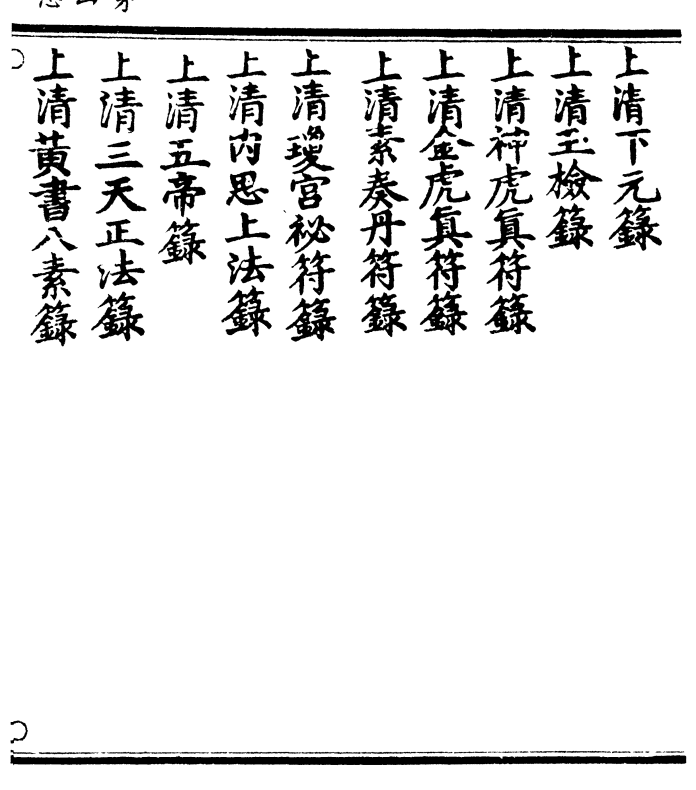 上清下元籙
上清玉檢籙
上清神虎真符籙
上清金虎真符籙
上清素奏丹符籙
上清瓊宮祕符籙
上清內思上法籙
上清五帝籙
上清三天正法籙
上清黃書八素籙